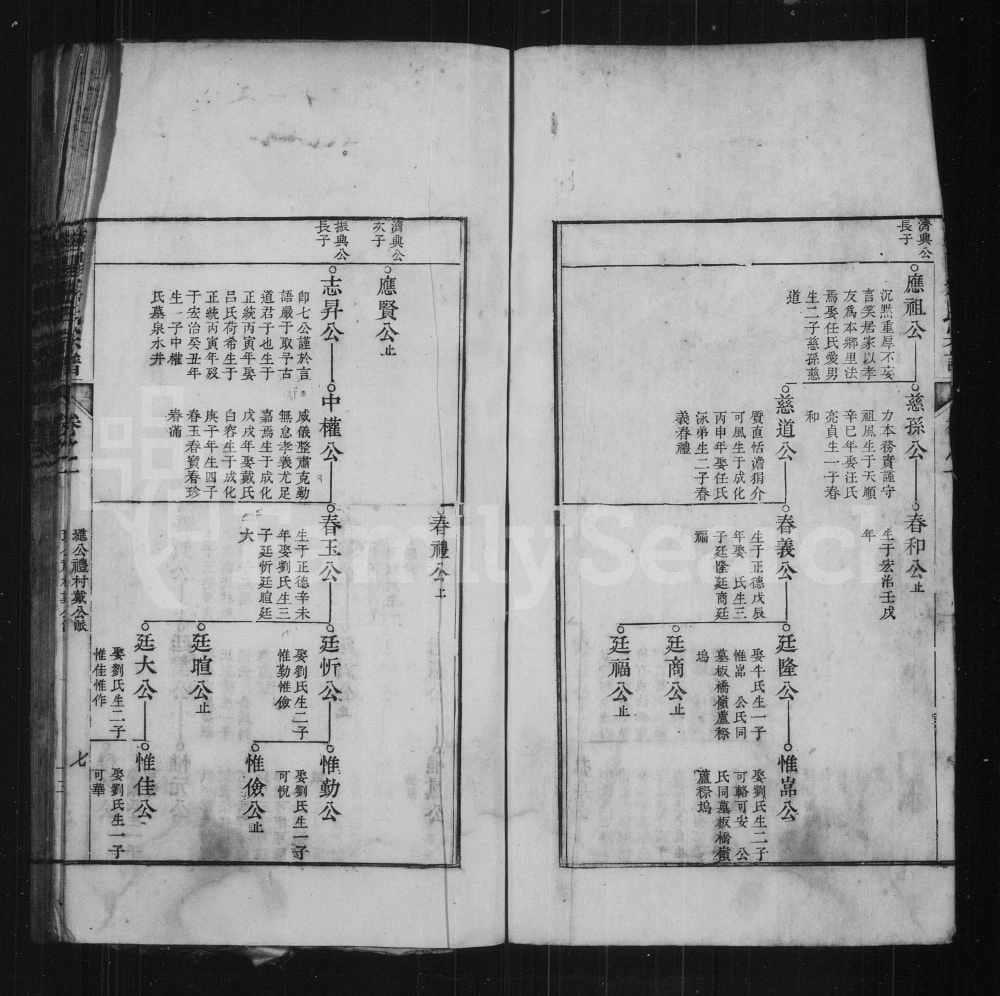 濟興公
長子
應祖公
沉黙重厚不妄
言笑居家以孝
友爲本鄉里法
焉娶任氏愛男
生二子慈孫慈
道
慈孫公
力本務實謹守
祖風生于天順
辛巳年娶汪氏
亮貞生一子春
和
春和公止
生于宏治壬戌
年
慈道公
質直恬澹狷介
可風生于成化
丙申年娶任氏
泳弟生二子春
義春禮
春義公
生于正德戊辰
年娶 氏生三
子廷隆廷商廷
福
廷隆公
娶牛氏生一子
惟嵓 公氏同
墓板橋嶺蘆穄
塢
惟嵓公
娶劉氏生二子
可輅可安 公
氏同墓板橋嶺
蘆穄塢
廷商公止
廷福公止
春禮公止
濟興公
次子
應賢公止
振興公
長子
志昇公
卽七公謹於言
語嚴于取予古
道君子也生于
正統丙寅年娶
呂氏荷希生于
正統丙寅年歿
于宏治癸丑年
生一子中權
氏墓泉水井
中權公
威儀整肅克勤
無怠孝義尤足
嘉焉生于成化
戊戌年娶戴氏
白容生于成化
庚子年生四子
春玉春寶春珍
春滿
春玉公
生于正德辛未
年娶劉氏生三
子廷忻廷暄廷
大
廷忻公
娶劉氏生二子
惟勤惟儉
惟勤公
娶劉氏生一子
可悅
惟儉公止
廷暄公止
廷大公
娶劉氏生二子
惟佳惟作
惟佳公
娶劉氏生一子
可華
宗譜
卷之二
璡公禮村戴公派
七
FamilySearch